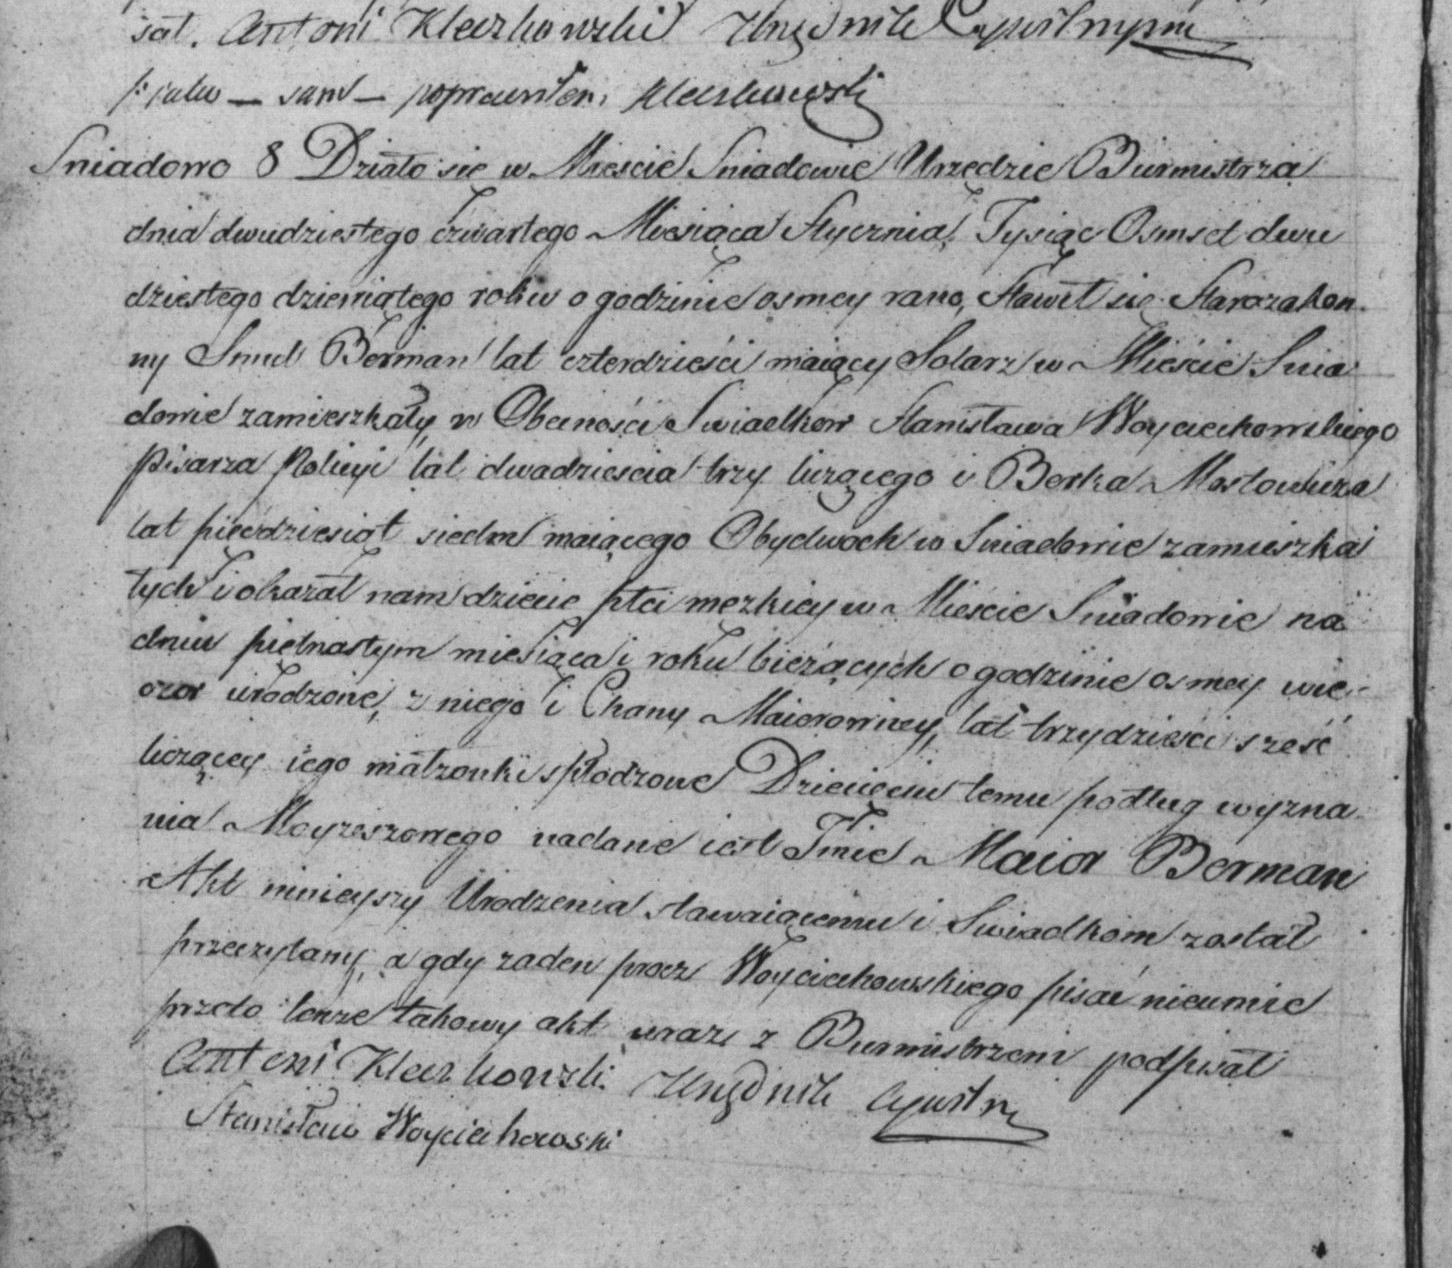 sał. Antoni Kleczkowski Urzędnik Cywilnym
poprawiłem Kleczkowski
Sniadowo 8 Działo się w Mieście Sniadowie Urzędzie Burmistrza
dnia dwudziestego czwartego Miesiąca Stycznia, Tysiąc Osmset dwu
dziestego dziewiątego roku o godzinie osmey rano, Stawił się Starozakon
ny Smul Berman lat czterdzieści maiący Solarz w Mieście Snia
dowie zamieszkały, w Obecności Swiadkow Stanisława Woyciechowskiego
Pisarza Policyi lat dwadzieścia trzy liczącego i Berka Mostowicza
lat piećdziesiąt siedm maiącego Obydwoch w Sniadowie zamieszka
łych i okazał nam dziecie płci mezkiey w Mieście Sniadowie na
dniu pietnastym miesiąca i roku bieżących o godzinie osmey wie-
czor urodzone, z niego i Chany Maierowney, lat trzydzieści sześć
liczącey iego małzonki spłodzone Dziecieciu temu podług wyzna
nia Moyzeszowego nadane iest Imie Maior Berman
Akt ninieyszy Urodzenia stawaiącemu i Swiadkom został
przeczytany, a gdy zaden procz Woyciechowskiego pisać nieumie
przeto tenże takowy akt wraz z Burmistrzem podpisał
Antoni Kleczkowski Urzędnik Cywilny
Stanisław Woyciechowski